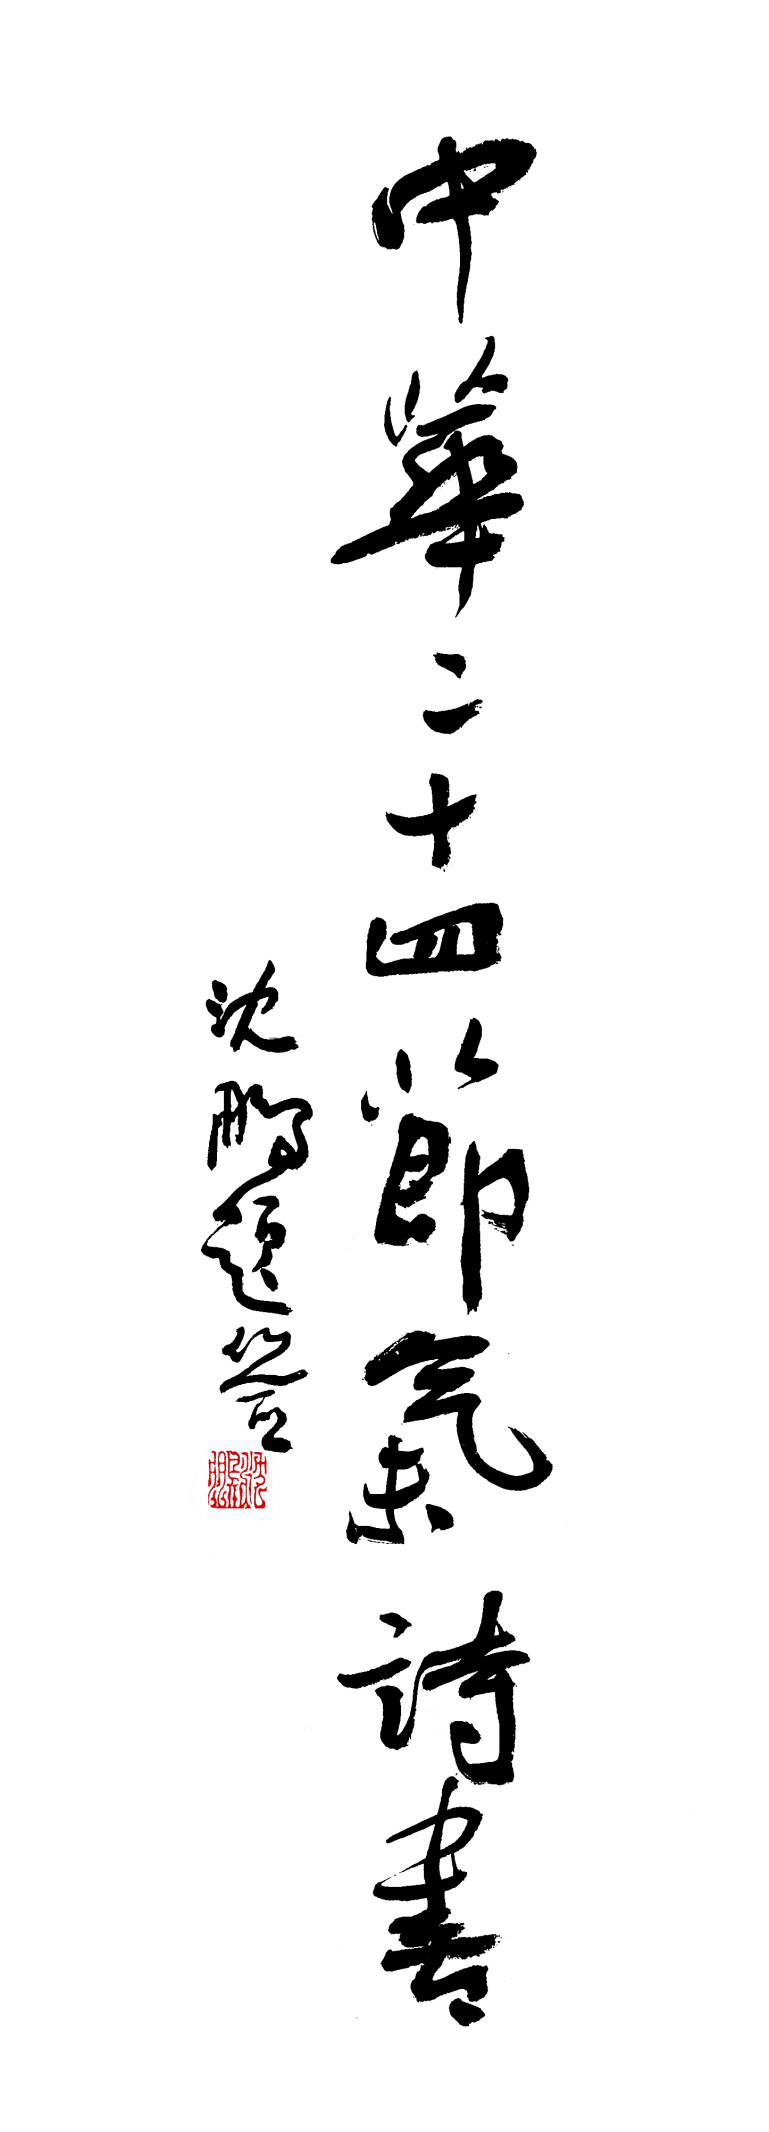 中華二十四節氣詩書
沈鵬題簽
沈鵬